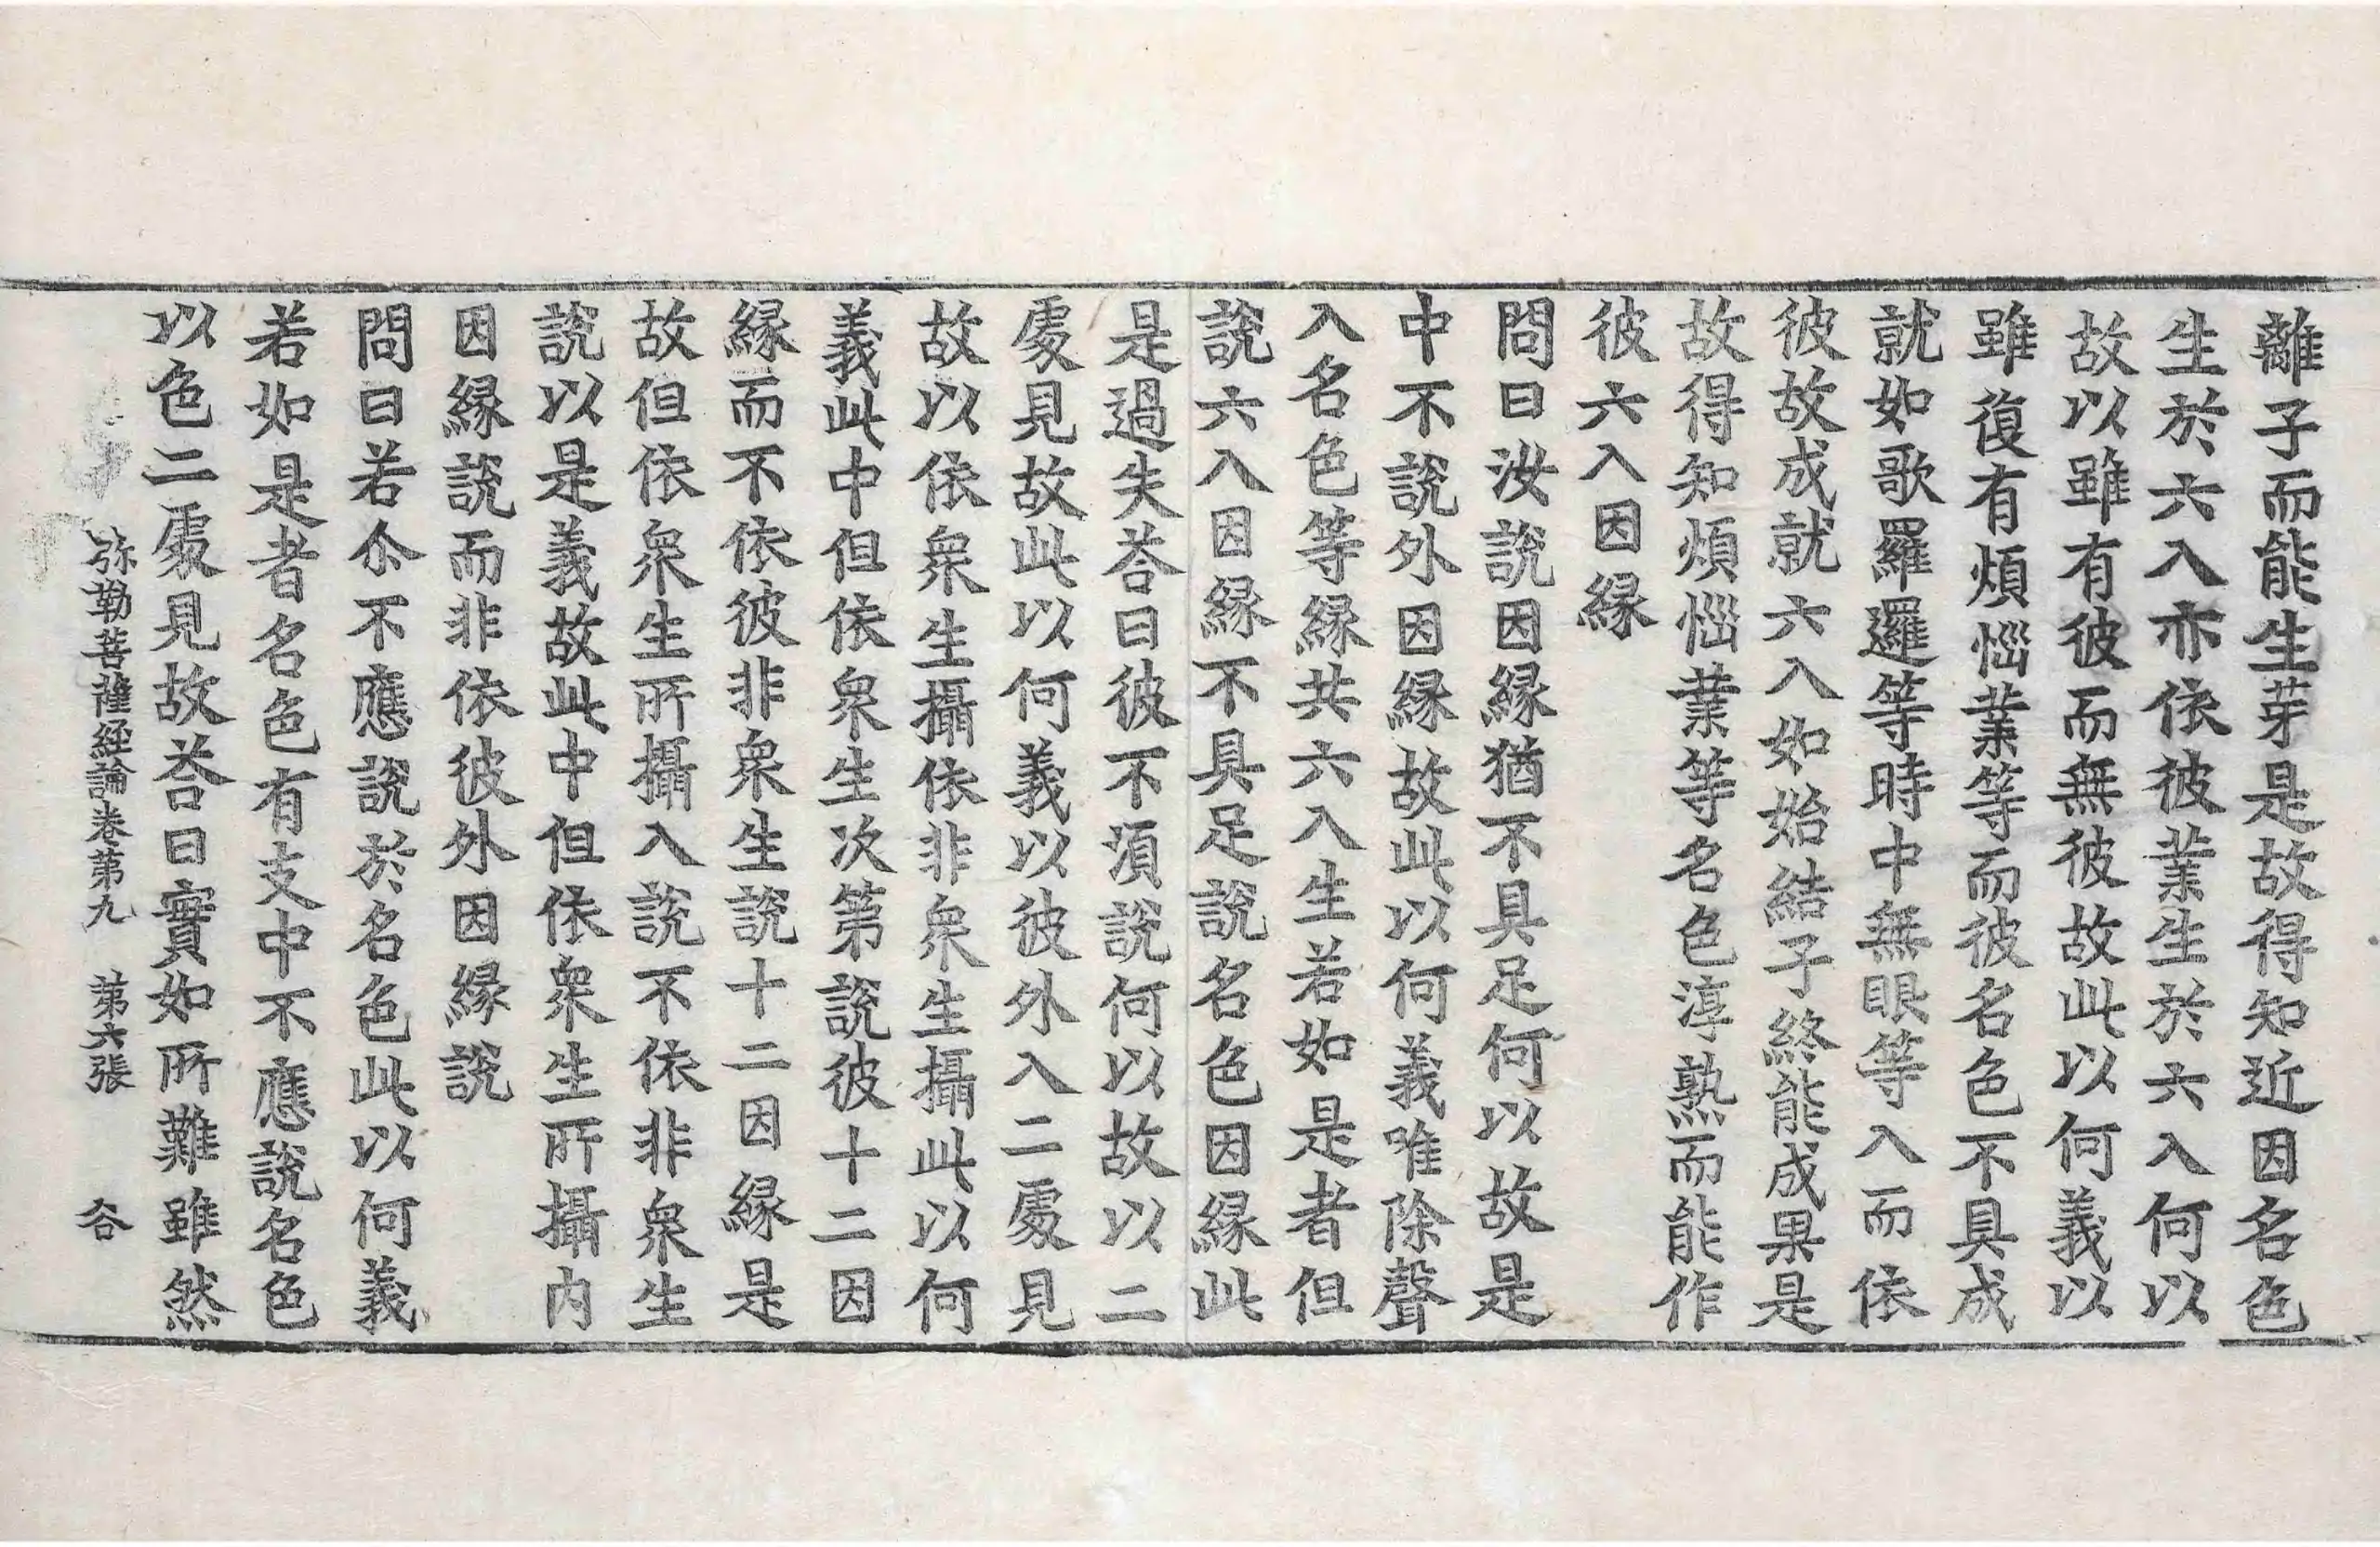 離子而能生芽是故得知近因名色
生於六入亦依彼業生於六入何以
故以雖有彼而無彼故此以何義以
雖復有煩惱業等而彼名色不具成
就如歌羅邏等時中無眼等入而依
彼故成就六入如始結子終能成果是
故得知煩惱業等名色淳熟而能作
彼六入因縁
問曰汝說因縁猶不具足何以故是
中不說外因縁故此以何義唯除聲
入名色等縁共六入生若如是者但
說六入因縁不具足說名色因縁此
是過失荅曰彼不湏說何以故以二
處見故此以何義以彼外入二處見
故以依衆生攝依非衆生攝此以何
義此中但依衆生次第說彼十二因
縁而不依彼非衆生說十二因縁是
故但依衆生所攝入說不依非衆生
說以是義故此中但依衆生所攝内
因縁說而非依彼外因縁說
問曰若尒不應說於名色此以何義
若如是者名色有支中不應說名色
以色二處見故荅曰實如所難雖然
弥勒菩薩経論卷第九 第六張 㕣